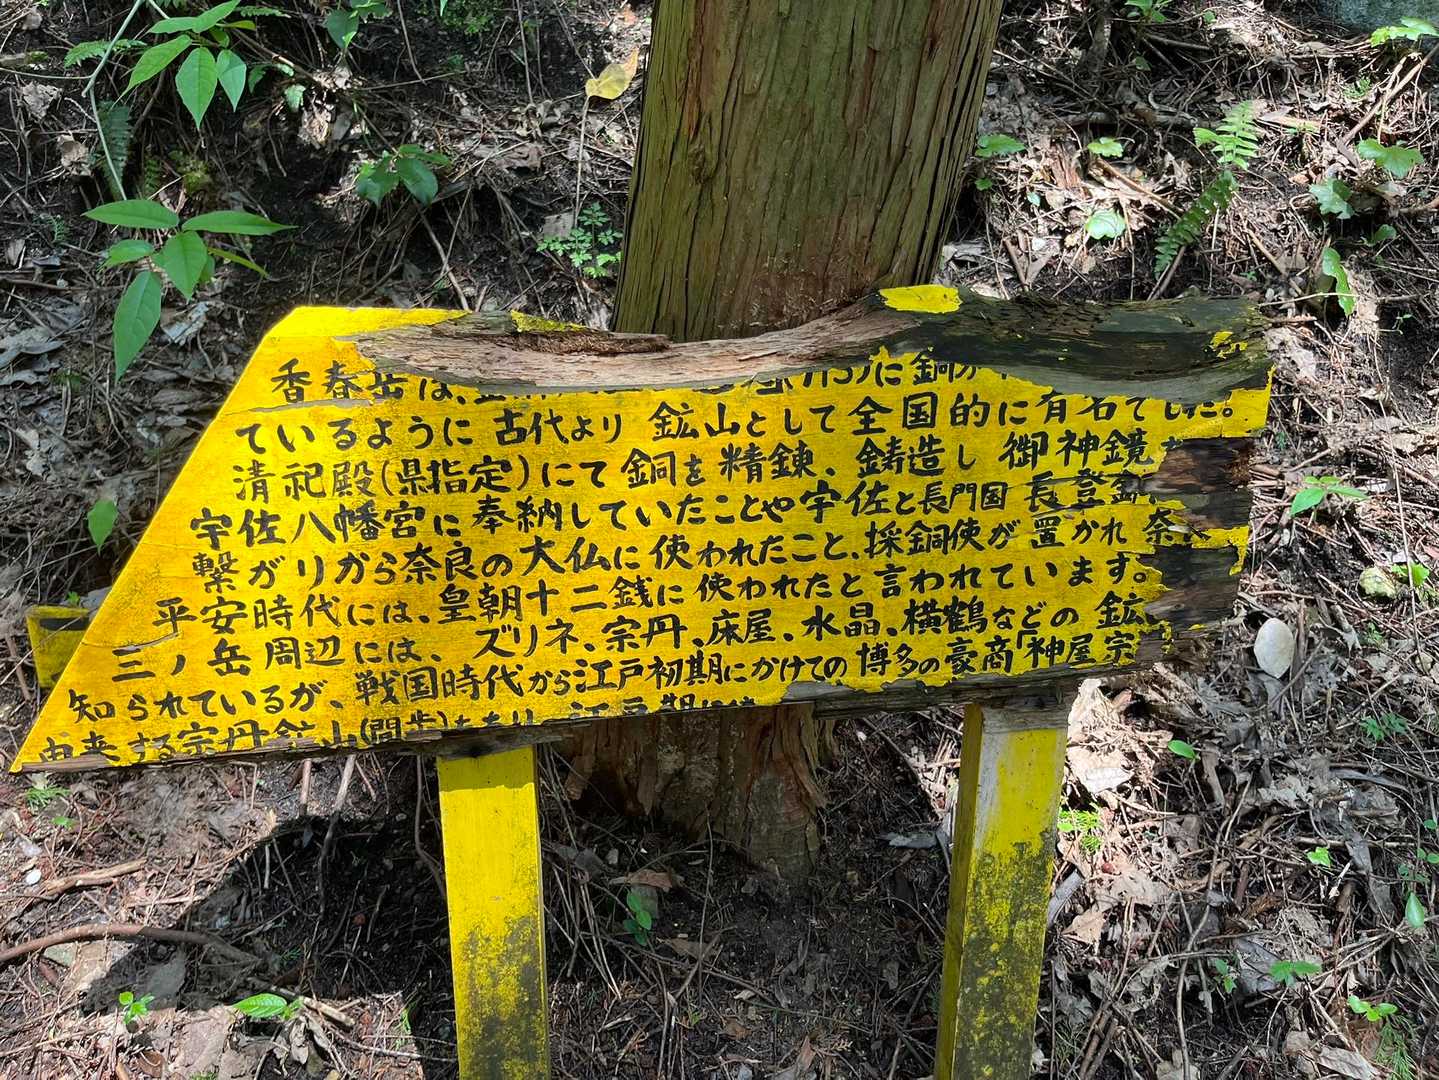 香春岳は、
ているように 古代より 鉱山として全国的に有名でした。
清祀殿(県指定)にて銅を精錬、鋳造し 御神鏡
宇佐八幡宮に奉納していたことや宇佐と長門国 長登
繋がりから奈良の大仏に使われたこと、採銅使が置かれ 奈
平安時代には、皇朝十二銭に使われたと言われています。
三ノ岳周辺には、ズリネ、宗丹、床屋、水晶、横鶴などの 鉱
知られているが、戦国時代から江戸初期にかけての博多の豪商「神屋宗
由来する宗丹鉱山(間歩)